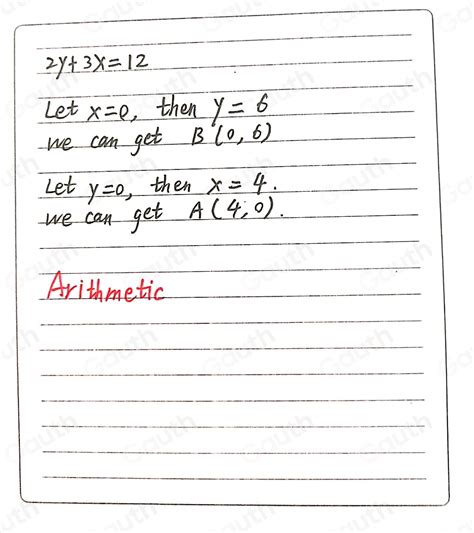 2y+3x=12
Let x=0, then y=6
we can get B(0,6)
Let y=0, then x=4.
we can get A(4,0).
Arithmetic